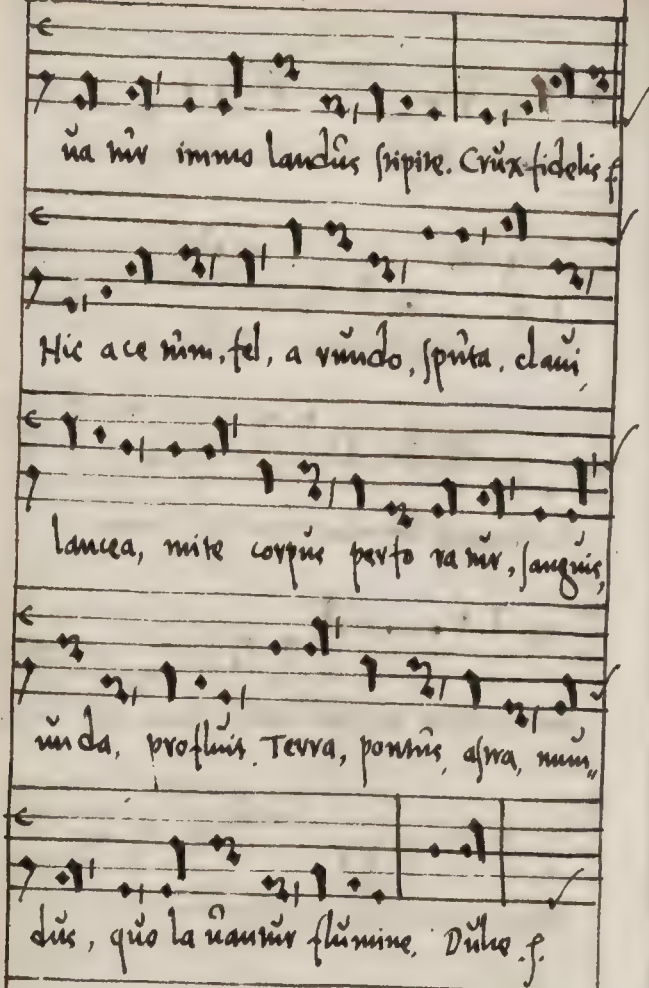 ua tur immo landus stipite. Crux fidelis f.
Hic ace tum, fel, a rundo, sputa, claui,
lancea, mite corpus perfo ra tur, sanguis,
unda, profluit. Terra, pontus, astra, mun„
dus, quo la uantur flumine. Dulce. f.